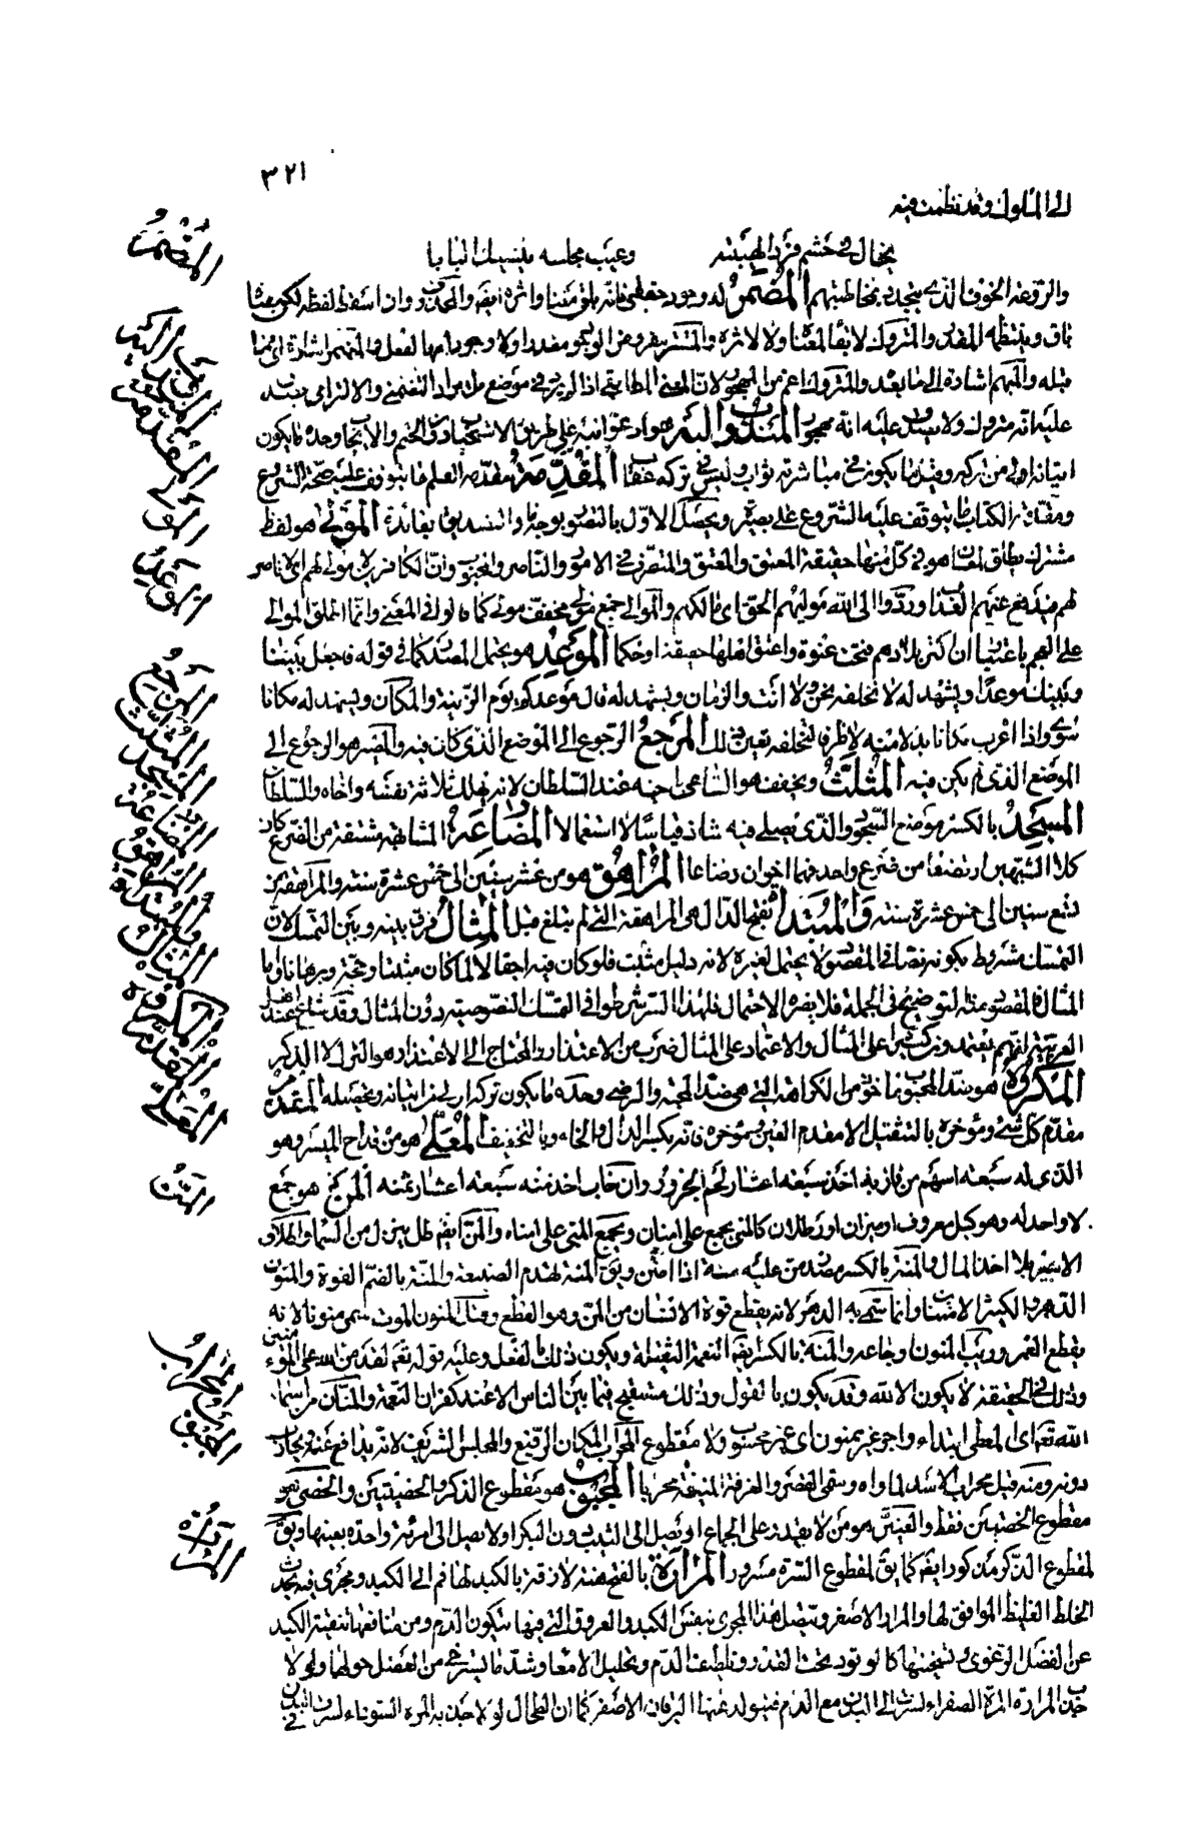 ٣٢١
الى الملوك وقد نظمت فيه
يخال في خشم فرد الهيبته وعيب مجلسه ينسيك البابا
والرقعة الخوف الذي يتجدد بمخاطبتهم المضمر له وجود حقيقي فانه باق معنا واثره ايضا والمحذوف وان اسقط لفظه لكن معناه
باق وينتظمه المقدر والمتروك لا بقاء لمعناه ولا لاثره والمستتر مفروض الوجود مقدرا ولا وجود
قبله والمبهم اشارة الى ما بعد والمتروك اعم من المهجور لان المعنى المطابقي اذا لم يرد في موضع بل يراد التضمني والالتزامي يصدق
عليه انه متروك ولا يصدق عليه انه مهجور المندوب اليه هو ادعو اليه على طريق الاستحباب دون الحتم والايجاب وحده ما يكون
اتيانه اولى من تركه وقيل ما يكون في مباشرته ثواب وليس في تركه عقاب المقدمة مقدمة العلم ما يتوقف عليه صحة الشروع
ومقدمة الكتاب ما يتوقف عليه الشروع على بصيرة ويحصل الاول بالتصور بوجه ما والتصديق بفائدة المولى هو لفظ
مشترك يطلق لمعان هو في كل منها حقيقة المعتق والمعتق والمتصرف في الامور والناصر والمحبوب وان الكافرين لا مولى لهم اي لا ناصر
لهم فيدفع عنهم العذاب وردوا الى الله موليهم الحق اي مالكهم والموالي جمع مولى مخفف مولى كما قالوا في المعنى وانما اطلق الموالي
على العجم باعتبار ان اكثر بلادهم فتحت عنوة واعتق اهلها حقيقة او حكما الموعد هو يحتمل المصدر كما في قوله فاجعل بيننا
وبينك موعدا ويشهد له لا نخلفه نحن ولا انت والزمان ويشهد له قال موعدكم يوم الزينة والمكان ويشهد له مكانا
سوى واذا اعرب مكانا بدلا منه لا ظرفا لنخلفه تعين ذلك المرجع الرجوع الى الموضع الذي كان فيه والمصير هو الرجوع الى
الموضع الذي لم يكن فيه المثلث ويخفف هو الساعي باخيه عند السلطان لانه يهلك ثلاثة نفسه واخاه والسلطان
المسجد بالكسر موضع السجود والذي يصلى فيه شاذ قياسا لا استعمالا المضارعة المشابهة مشتقة من الضرع كان
كلا الشبهين ارتضعا من ضرع واحد فهما اخوان رضاعا المراهق هو من عشر سنين الى خمس عشرة سنة والمراهقة من
تسع سنين الى خمس عشرة سنة والمبتدأ بفتح الدال هي المراهقة التي لم تبلغ قبل المثال فرق بينه وبين التمسك لان
التمسك شريط بكونه نصا في المقصود لا يحتمل لغيره لانه دليل مثبت فلو كان فيه احتمالا لما كان مثبتا وحجة وبرهانا واما
المثال فالمقصود منه التوضيح في الجملة فلا يضره الاحتمال فلهذا السر شرطوا في التمسك النصوصية دون المثال وقد شاع عند اهل
العربية انهم يعتمدون كثيرا على المثال والاعتماد على المثال ضرب من الاعتذار والمحتاج الى الاعتذار هو الترك لا الذكر
المكروه هو ضد المحبوب ماخوذ من الكراهة التي هي ضد المحبة والرضى وحده ما يكون تركه اولى من اتيانه وتحصيله المقدم
مقدم كل شئ ومؤخره بالتثقيل الا مقدم العين ومؤخره فانه بكسر الدال والخاء وبالتخفيف المعلى هو من قداح الميسر وهو
الذي له سبعة اسهم من فاز به اخذ سبعة اعشار لحم الجزور وان خاب اخذ منه سبعة اعشار ثمنه المن هو جمع
لا واحد له وهو كيل معروف او ميزان او رطلان كالمنى يجمع على امنان ويجمع المنى على امناء والمن ايضا طل ينزل من السماء والطلاق
الاسير بلا اخذ المال والمنة بالكسر مصدر من عليه منة اذا امتن ويق المنة تهدم الصنيعة والمنة بالضم القوة والمنون
الدهر والكثير الامتنان وانما سمى به الدهر لانه يقطع قوة الانسان من المن وهو القطع وقيل المنون الموت سمى منونا لانه
يقطع العمر وريب المنون اوجاعه والمنة بالكسر ايضا النعمة الثقيلة ويكون ذلك بالفعل وعليه قوله تعالى لقد من الله على المؤمنين
وذلك في الحقيقة لا يكون الا لله وقد يكون بالقول وذلك مستقبح فيما بين الناس الا عند كفران النعمة والمنان من اسماء
الله تعالى اي المعطي ابتداء واجر غير ممنون اي غير محسوب ولا مقطوع المحراب المكان الرفيع والمجلس الشريف لانه يدافع عنه ويحارب
دونه ومنه قيل محراب الاسد لماواه وسمى القصر والغرفة المنيفة محرابا المجبوب هو مقطوع الذكر والخصيتين والخصي هو
مقطوع الخصيتين فقط والعنين هو من لا يقدر على الجماع او يصل الى الثيب دون البكر او لا يصل الى امرءة واحدة بعينها ويق
لمقطوع الذكر مذكور ايضا كما يق لمقطوع السرة مسرور المرارة بالفتح هنة لازقة بالكبد لها فم الى الكبد ومجرى فيه يجذب
الخلط الغليظ الموافق لها والمرار الاصفر ويتصل هذا المجرى بنفس الكبد والعروق التي فيها يتكون الدم ومن منافعها تنقية الكبد
عن الفضل الرغوى وتسخينها كالوقود تحت القدر وتلطيف الدم وتحليل الامعاء وشد ما يسترخى من العضل حولها ولو لا
جذب المرارة المرة الصفراء لسرت الى البدن مع الدم فيتولد عنها اليرقان الاصفر كما ان الطحال لو لا جذبه المرة السوداء لسرت الى البدن في
المضمر
المندوب اليه
المقدمة
المولى
الموعد
المرجع
المثلث
المسجد
المضارعة
المراهق
والمبتدأ
المثال
المكروه
المقدم
المعلى
المن
المحراب
المجبوب
المرارة